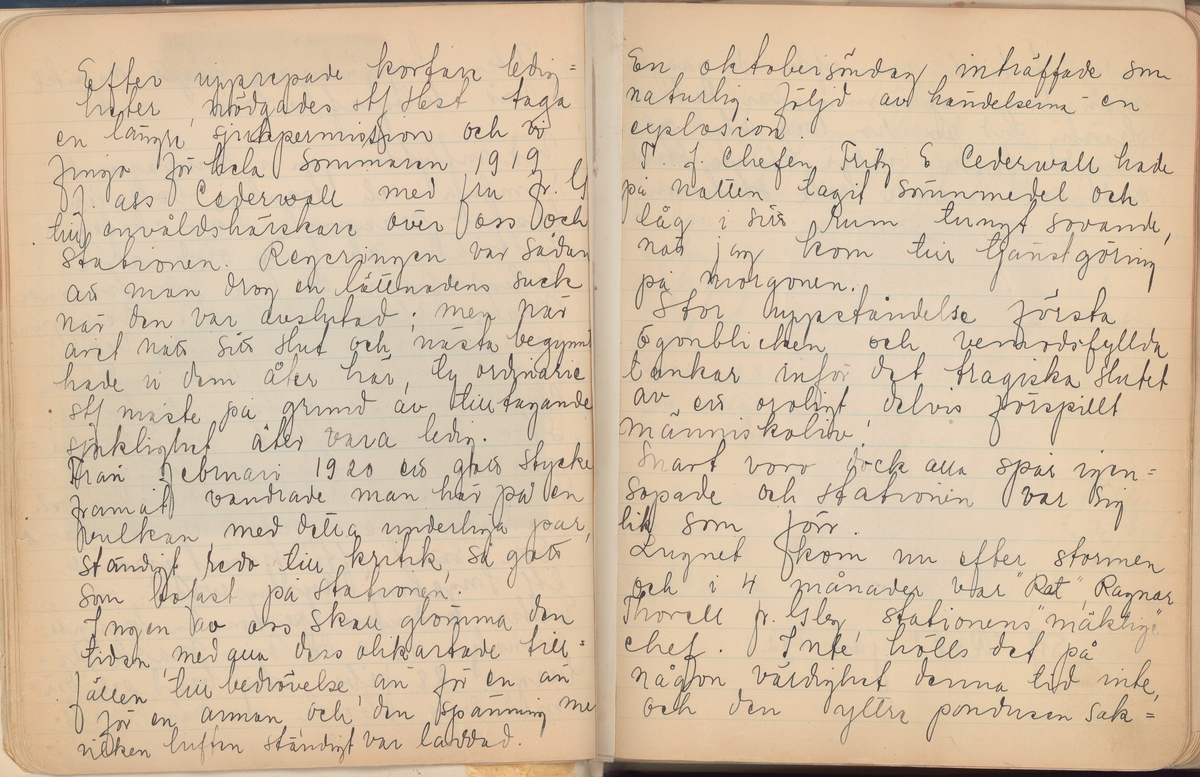 Efter upprepade kortare ledig=
heter, nödgades stf Hest taga
en längre sjukpermission och vi
fingo för hela sommaren 1919
f. ass Cederwall med fru fr. G
till envåldshärskare över oss och
stationen. Regeringen var sådan
att man drog en lättnadens suck
när den var avslutad; men när
året nått sitt slut och nästa begynt
hade vi dem åter här, ty ordinarie
stf måste på grund av tilltagande
sjuklighet åter vara ledig.
Från Februari 1920 ett gott stycke
framåt vandrade man här på en
vulkan, med detta underliga par,
ständigt redo till kritik, så gott
som bofast på stationen.
Ingen av oss skall glömma den
tiden med alla dess olikartade till=
fällen till bedrövelse än för en än
för en annan och den spänning me
vilken luften ständigt var laddad.
En oktobersöndag inträffade som
naturlig följd av händelserna en
explosion.
T. f. Chefen Fritz E Cederwall hade
på natten tagit sömnmedel och
låg i sitt rum tungt sovande,
när jag kom till tjänstgöring
på morgonen.
Stor uppståndelse första
ögonblicken och vemodsfyllda
tankar inför det tragiska slutet
av ett oroligt delvis förspillt
människoliv!
Snart voro dock alla spår igen=
sopade och stationen var sig
lik som förr.
Lugnet kom nu efter stormen
och i 4 månader var "Rat", Ragnar
Thorell fr. Gbg stationens "mäktige"
chef. Inte hölls det på
någon värdighet denna tid inte,
och den yttre pondusen sak=